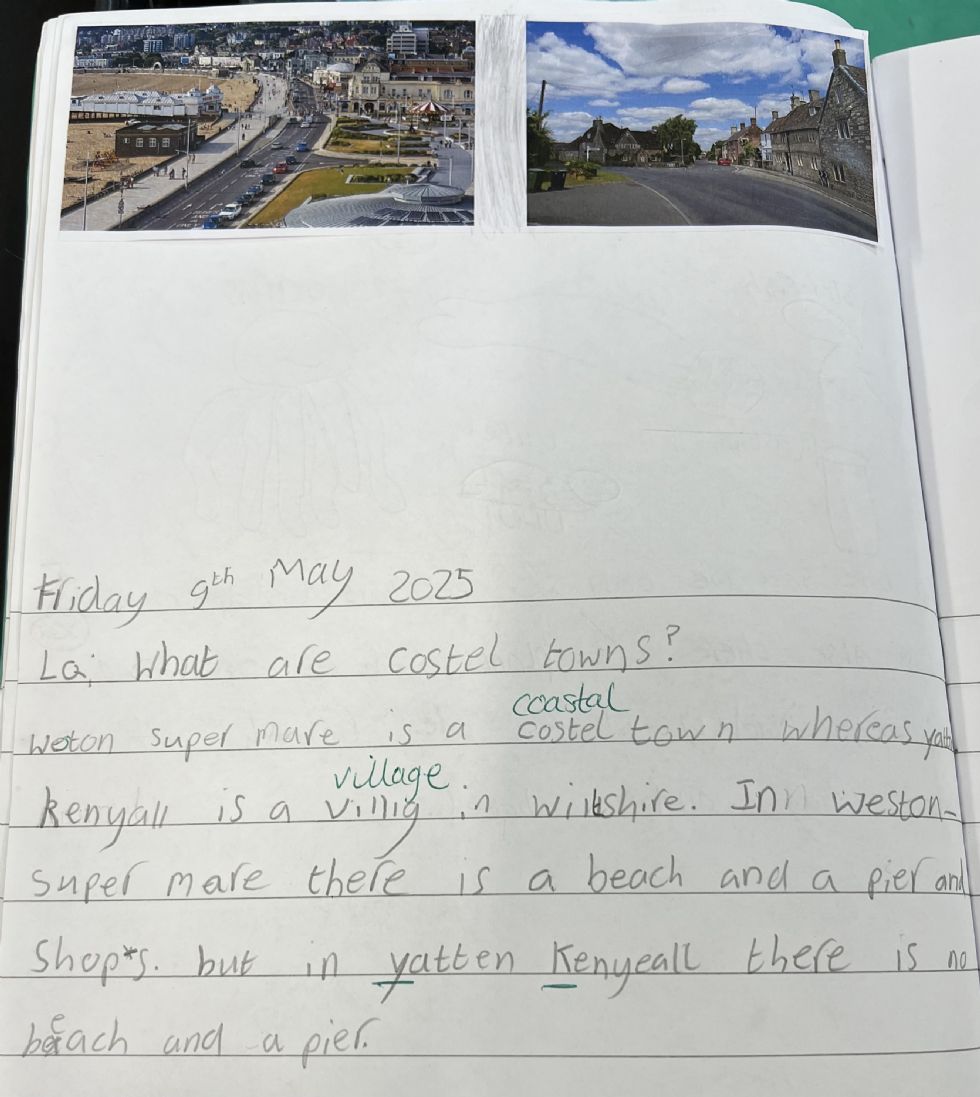 Friday 9th May 2025
La; What are costel towns?
coastal
weston super mare is a costel town whereas yatt
village
kenyall is a villig in wiltshire. In weston-
super mare there is a beach and a pier and
shop*s. but in yatten Kenyeall there is no
beach and a pier.